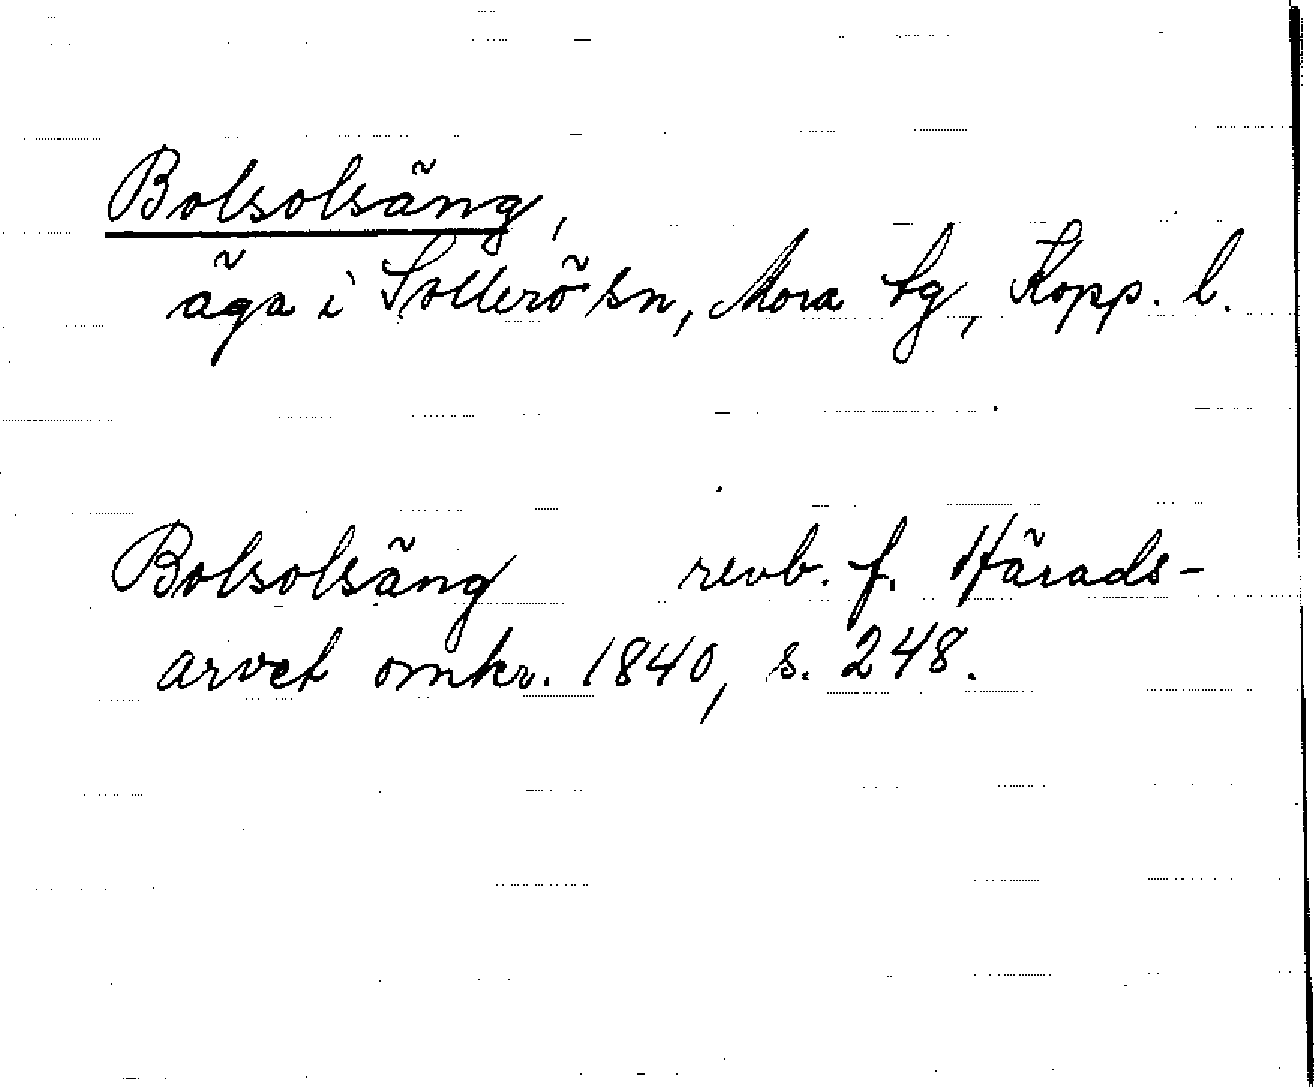 Bolsolsäng,
äga i Sollerö sn, Mora tg, Kopp. l.
Bolsolsäng revb. f. Härads-
arvet omkr. 1840, s. 248.